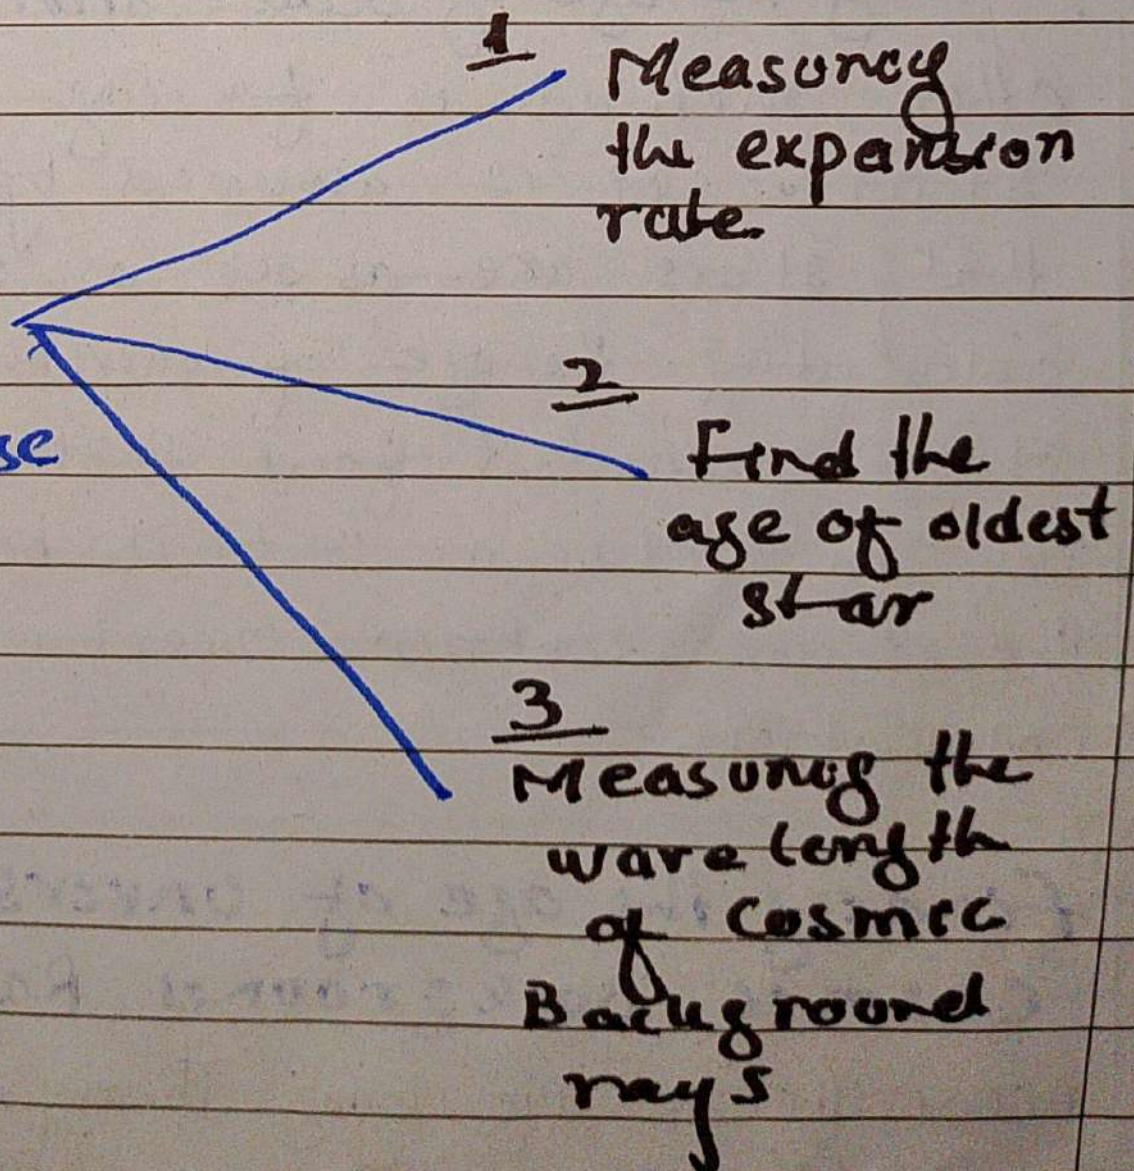 1
Measuring
the expansion
rate.
2
se
Find the
age of oldest
star
3
Measuring the
wavelength
of Cosmic
Background
rays